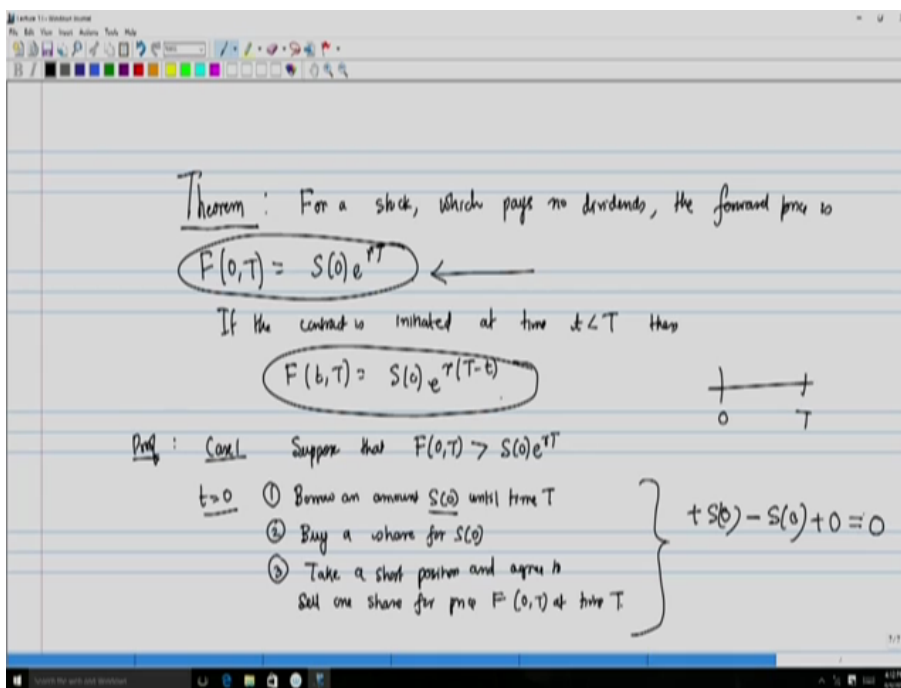 Lecture 11 - Windows Journal
File Edit View Insert Actions Tools Help
B I
Theorem : For a stock, which pays no dividends, the forward price is
F(0,T) = S(0)e^{rT}
If the contract is initiated at time t<T then
F(t,T) = S(0)e^{r(T-t)}
0 T
Proof : Case 1 Suppose that F(0,T) > S(0)e^{rT}
t=0 ① Borrow an amount S(0) until time T
② Buy a share for S(0)
③ Take a short position and agree to
sell one share for price F(0,T) at time T.
+S(0) - S(0) + 0 = 0
7/7
Search the web and Windows